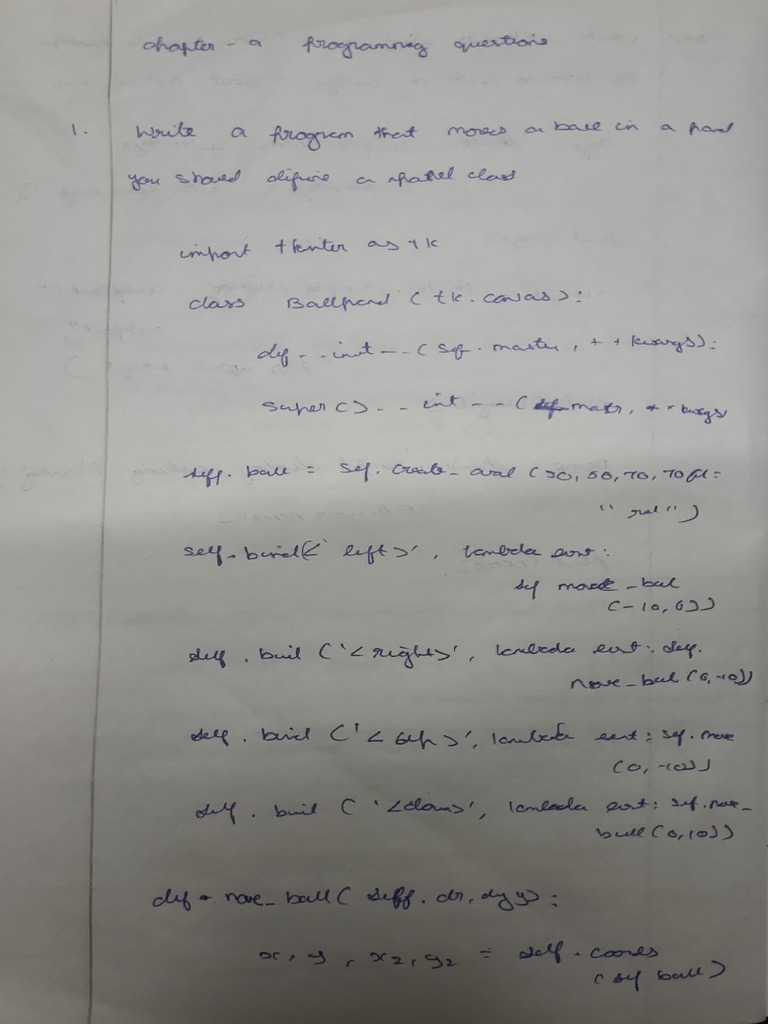 chapter - a programming questions
1. Write a program that moves a ball in a panel
you should difine a panel class
import tkinter as tk
class Ballpanel (tk.canvas):
def - - init - - (self. master, * * kwargs):
super() - - int - - (master, * * kwargs
self. ball = self. create_oval (30, 50, 70, 70 fil=
"red")
self. bind(<` left>', lambda evnt:
self move_ball
(-10, 0))
self. bind ('<right>', lambda evnt: self.
move_ball (0, -10))
self. bind ('< up >', lambda evnt: self. move
(0, -10))
self. bind ('<down>', lambda evnt: self. move_
ball (0, 10))
def move_ball ( self. dx, dy y):
x, y, x2, y2 = self. coords
(self ball)